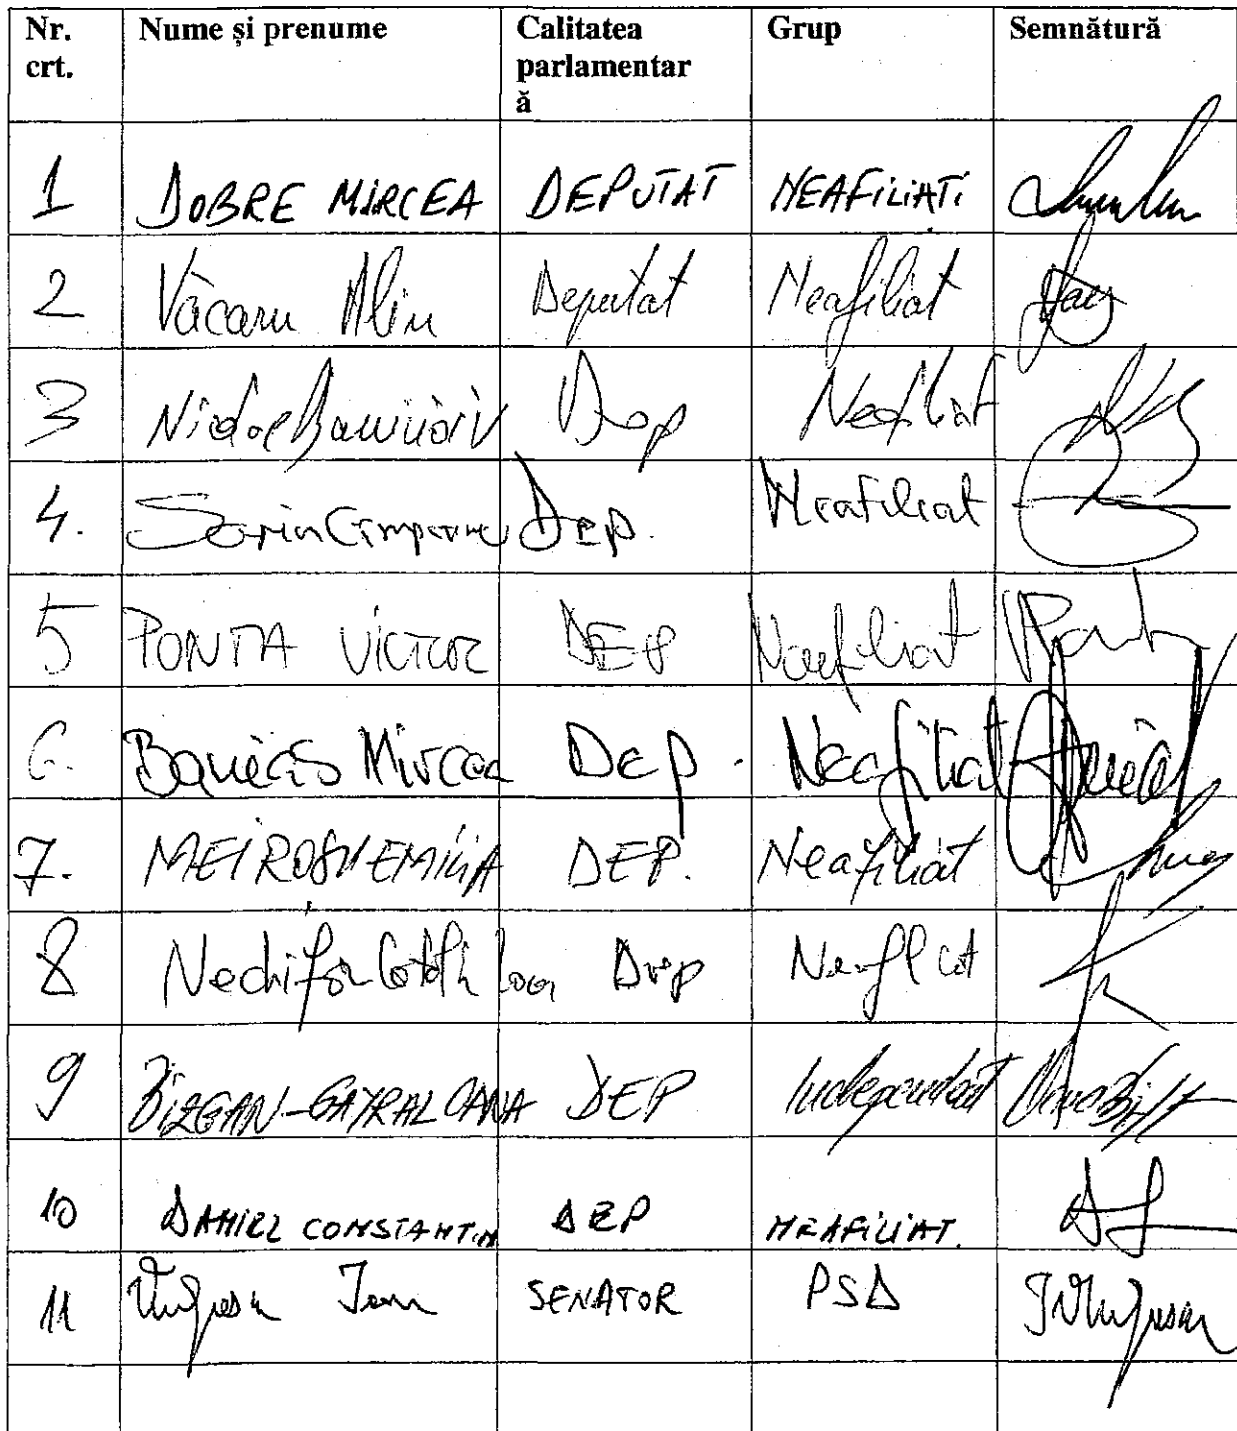 Nr. crt. Nume și prenume Calitatea parlamentară Grup Semnătură
1 DOBRE MIRCEA DEPUTAT NEAFILIATI
2 Văcaru Alin Deputat Neafiliat
3 Nicolae Dep Neafiliat
4. Sorin Cimpeanu Dep. Neafiliat
5 PONTA VICTOR DEP Neafiliat
6. Banias Mircea Dep. Neafiliat
7. MEIROSU EMILIA DEP. Neafiliat
8 Nechifor Catalin Ioan Dep Neafiliat
9 BIZGAN-GAYRAL OANA DEP Independent
10 DANIEL CONSTANTIN DEP NEAFILIAT.
11 SENATOR PSD